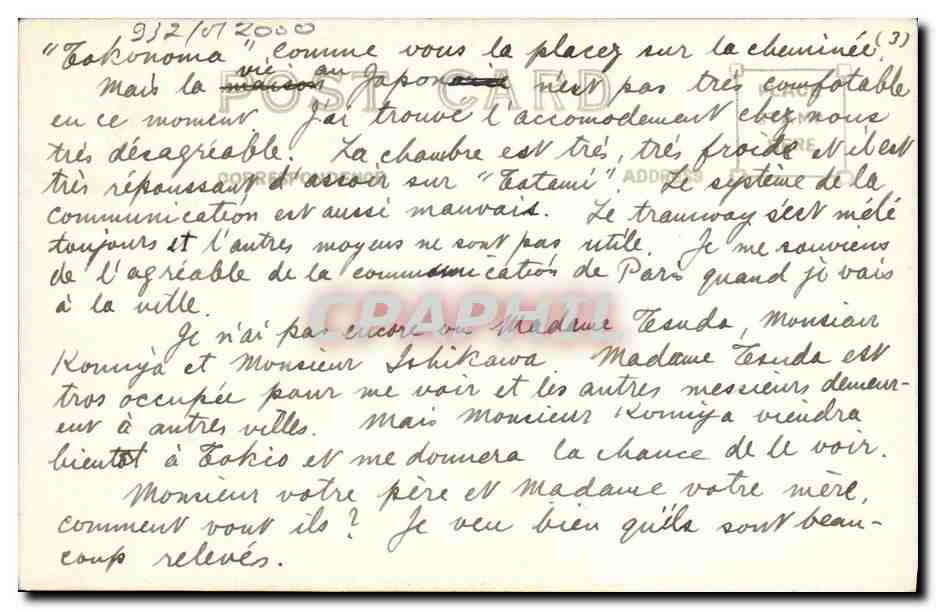 932/01 2000
"Tokonoma" comme vous la placez sur la cheminée. (3)
Mais la vie au Japon n'est pas très comfotable
en ce moment. J'ai trouvé l'accomodement chez nous
très désagréable. La chambre est très, très froide et il est
très répoussant d'assoir sur "Tatami". Le système de la
communication est aussi mauvais. Le tramway s'est mélé
toujours et l'autres moyens ne sont pas utile. Je me souviens
de l'agréable de la communication de Paris quand je vais
à la ville.
Je n'ai pas encore vu Madame Tsuda, Monsieur
Komiya et Monsieur Ishikawa. Madame Tsuda est
tros occupée pour me voir et les autres messieurs demeur-
ent à autres villes. Mais Monsieur Komiya viendra
bientôt à Tokio et me donnera la chance de le voir.
Monsieur votre père et Madame votre mère,
comment vont ils? Je veu bien qu'ils sont beau-
coup relevés.
POST CARD
CORRESPONDENCE
ADDRESS
PLACE
STAMP
HERE
CPAPHIL